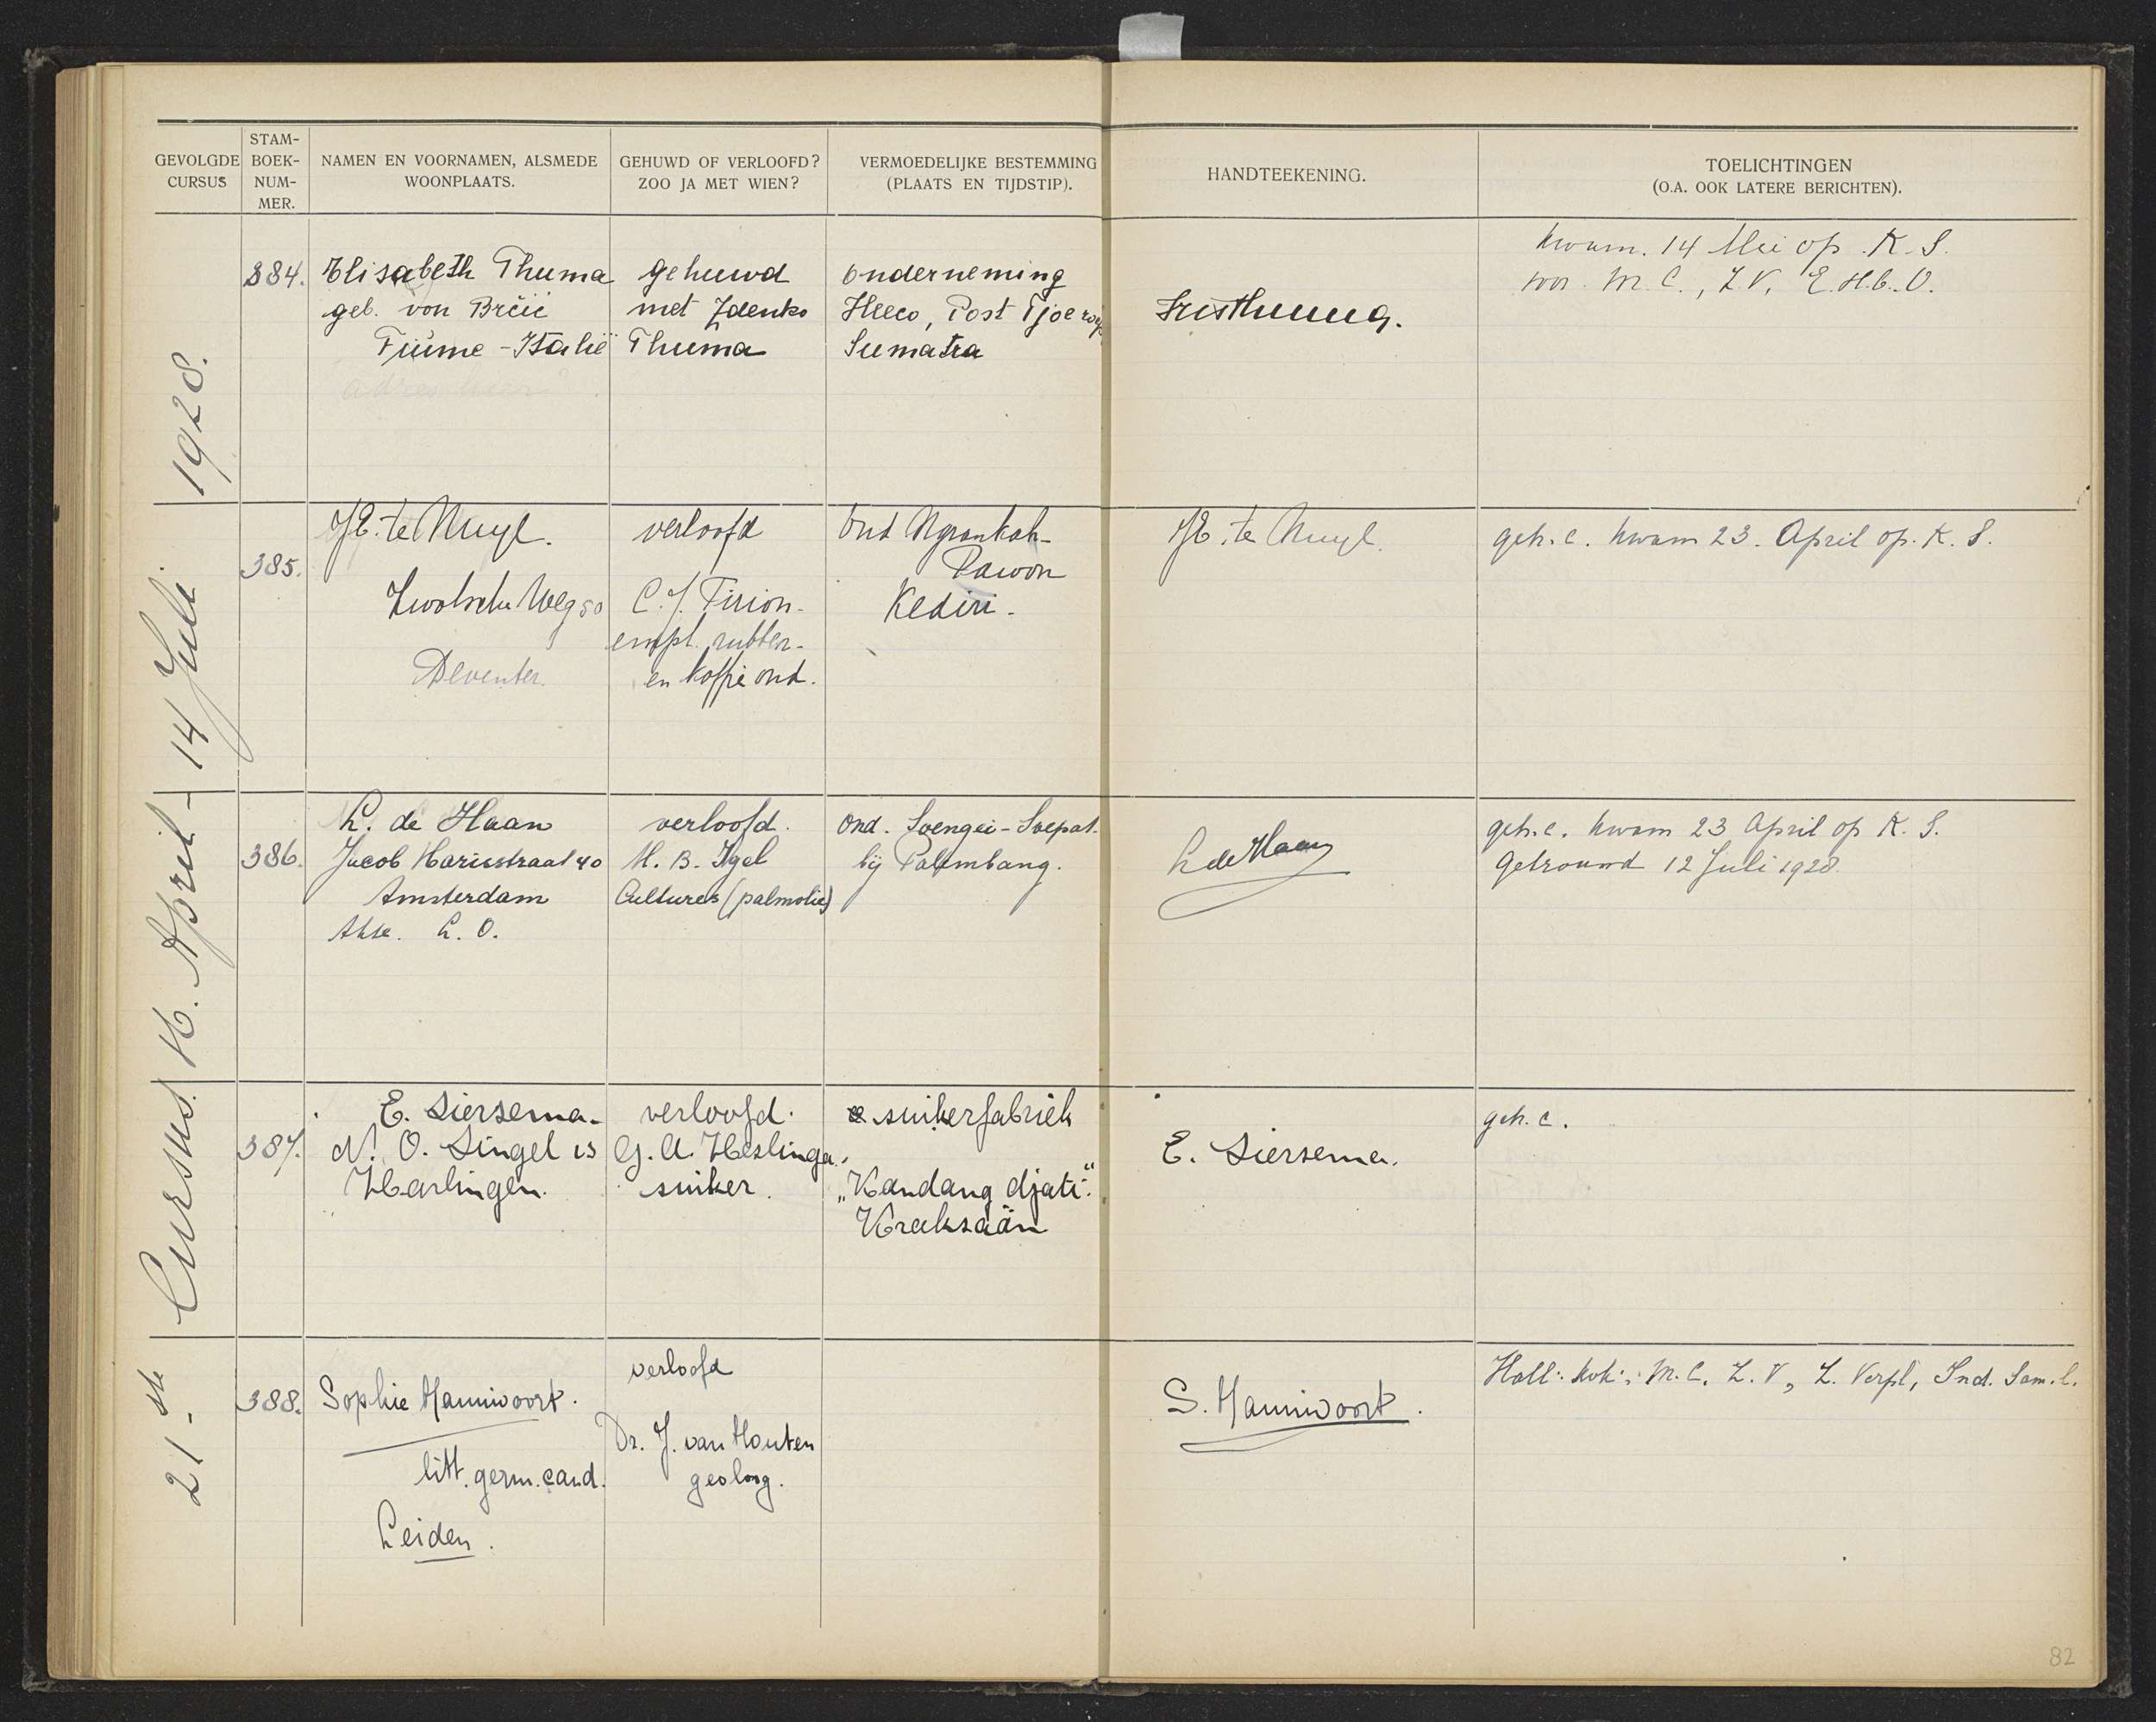 GEVOLGDE CURSUS
STAM-BOEK-NUM-MER.
NAMEN EN VOORNAMEN, ALSMEDE WOONPLAATS.
GEHUWD OF VERLOOFD? ZOO JA MET WIEN?
VERMOEDELIJKE BESTEMMING (PLAATS EN TIJDSTIP).
HANDTEEKENING.
TOELICHTINGEN
(O.A. OOK LATERE BERICHTEN).
21-ste Cursus H. April - 14 Juli 1928.
384.
Elisabeth Thuma
geb. von
Fiume - Italië
gehuwd
met Zdenko
Thuma
onderneming
Heeo, Post
Sumatra
kwam. 14 Mei op. K. S.
voor. M. C., Z. V. E.H.b.O.
385.
te Nuyl.
Zwolsche Weg 50
Deventer.
verloofd
C. J. Tirion.
empl. rubber-
en koffie ond.
Ond Ngrankah-
Pawon
Kediri.
te Nuyl.
geh. c. kwam 23. April op. K. S.
386.
L. de Haan
Jacob Marisstraat 40
Amsterdam
Akte. L. O.
verloofd.
H. B. Igel
Cultures (palmolie)
Ond. Soengei-Soepat.
bij Palembang.
L de Haan
geh. c. kwam 23 April op K. S.
Getrouwd 12 Juli 1928.
387.
E. Siersema.
N. O. Singel 13
Harlingen.
verloofd.
G. A. Heslinga.
suiker.
suikerfabriek
„Kandang djati".
Kraksaän
E. Siersema.
geh. c.
388.
Sophie Hanniwoort.
litt. germ. cand.
Leiden.
verloofd
Dr. J. van Houten
geoloog.
S. Hanniwoort.
Holl. kok., M. C. Z. V., Z. Verpl., Ind. Sam. l.
82